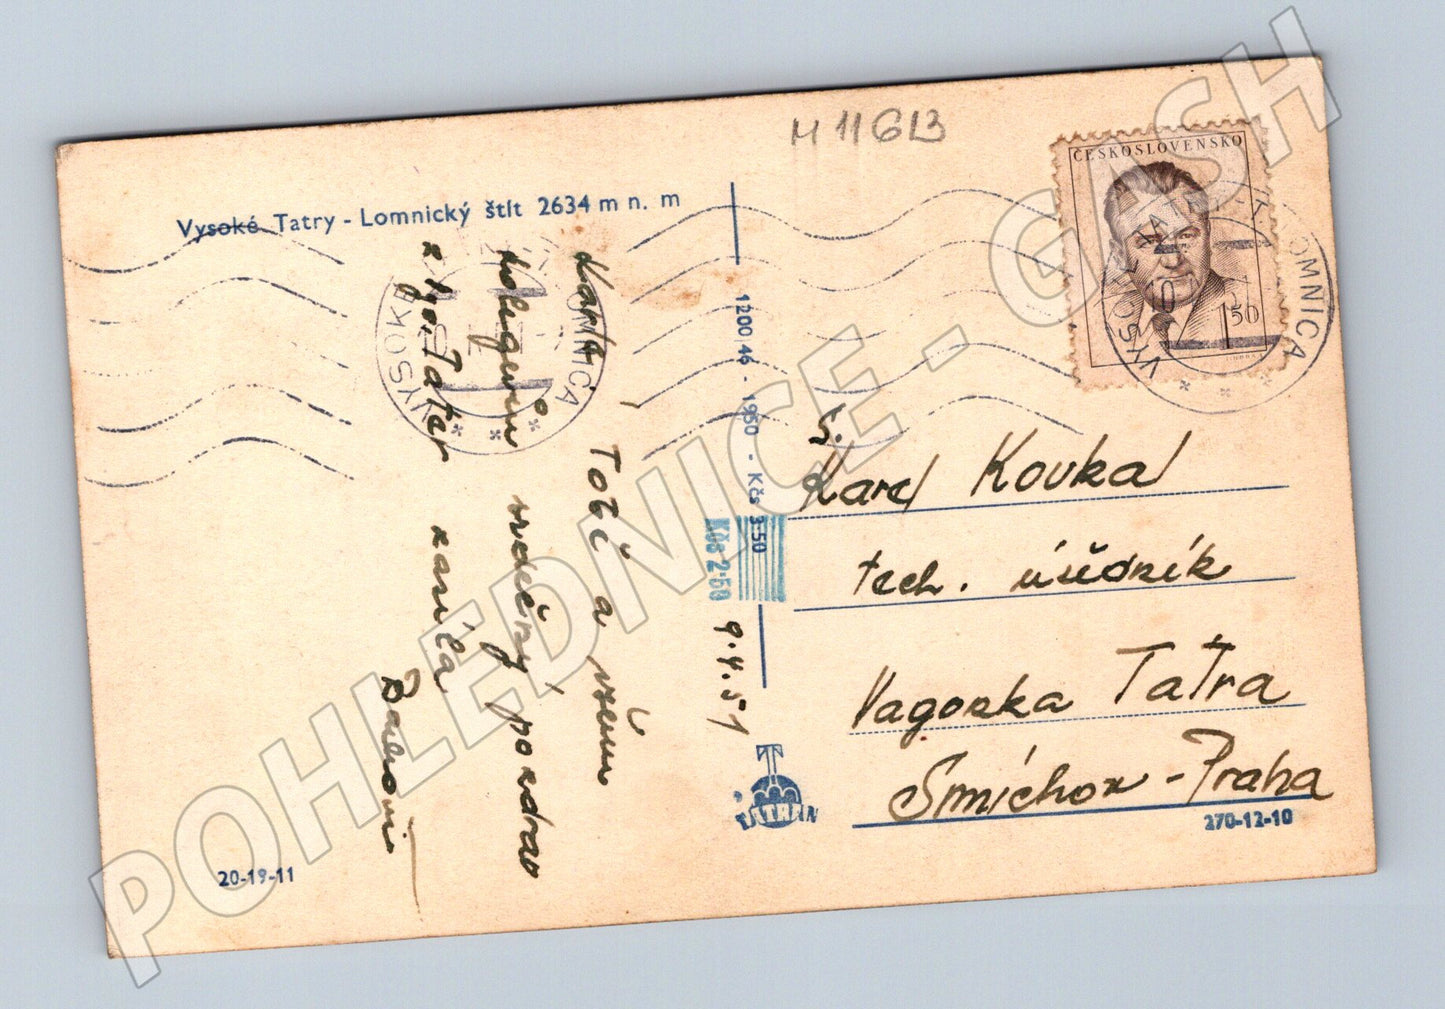 M 11613
ČESKOSLOVENSKO
1.50
VYSOKÉ TATRY LOMNICA
Vysoké Tatry - Lomnický štít 2634 m n. m
VYSOKÉ LOMNICA
1200/46 - 1950 - Kčs 3·50
Kčs 2·50
9.4.51
Karle, Tobě a všem
kolegům srdečný pozdrav
z Tater zasíla
TATRAN
20-19-11
S.
Karel Kouka
tech. úředník
Vagonka Tatra
Smíchov - Praha
270-12-10
POHLEDNICE - GASH